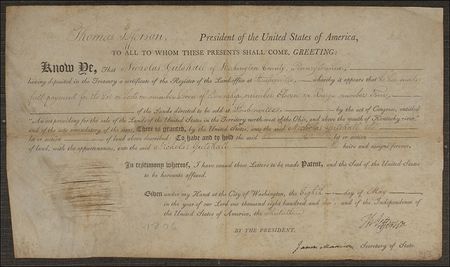 Thomas Jefferson, President of the United States of America,
TO ALL TO WHOM THESE PRESENTS SHALL COME, GREETING:
Know Ye, That Nicholas Gutshall of Washington County, Pennsylvania,
having deposited in the Treasury a certificate of the Register of the Land-office at Steubenville, whereby it appears that he has made
full payment for the Lot or Section number
of the Lands directed to be sold at Steubenville by the act of Congress, entitled
"An act providing for the sale of the Lands of the United States in the Territory north-west of the Ohio, and above the mouth of Kentucky river,"
and of the acts amendatory of the same, There is granted, by the United States, unto the said Nicholas Gutshall the
of land above described: To have and to hold the said
of land, with the appurtenances, unto the said Nicholas Gutshall his heirs and assigns forever.
In testimony whereof, I have caused these Letters to be made Patent, and the Seal of the United States
to be hereunto affixed.
Given under my Hand at the City of Washington, the Eighth day of May
in the year of our Lord one thousand eight hundred and Six and of the Independence of
the United States of America, the Thirtieth
1806
BY THE PRESIDENT,
Th: Jefferson
James Madison Secretary of State.